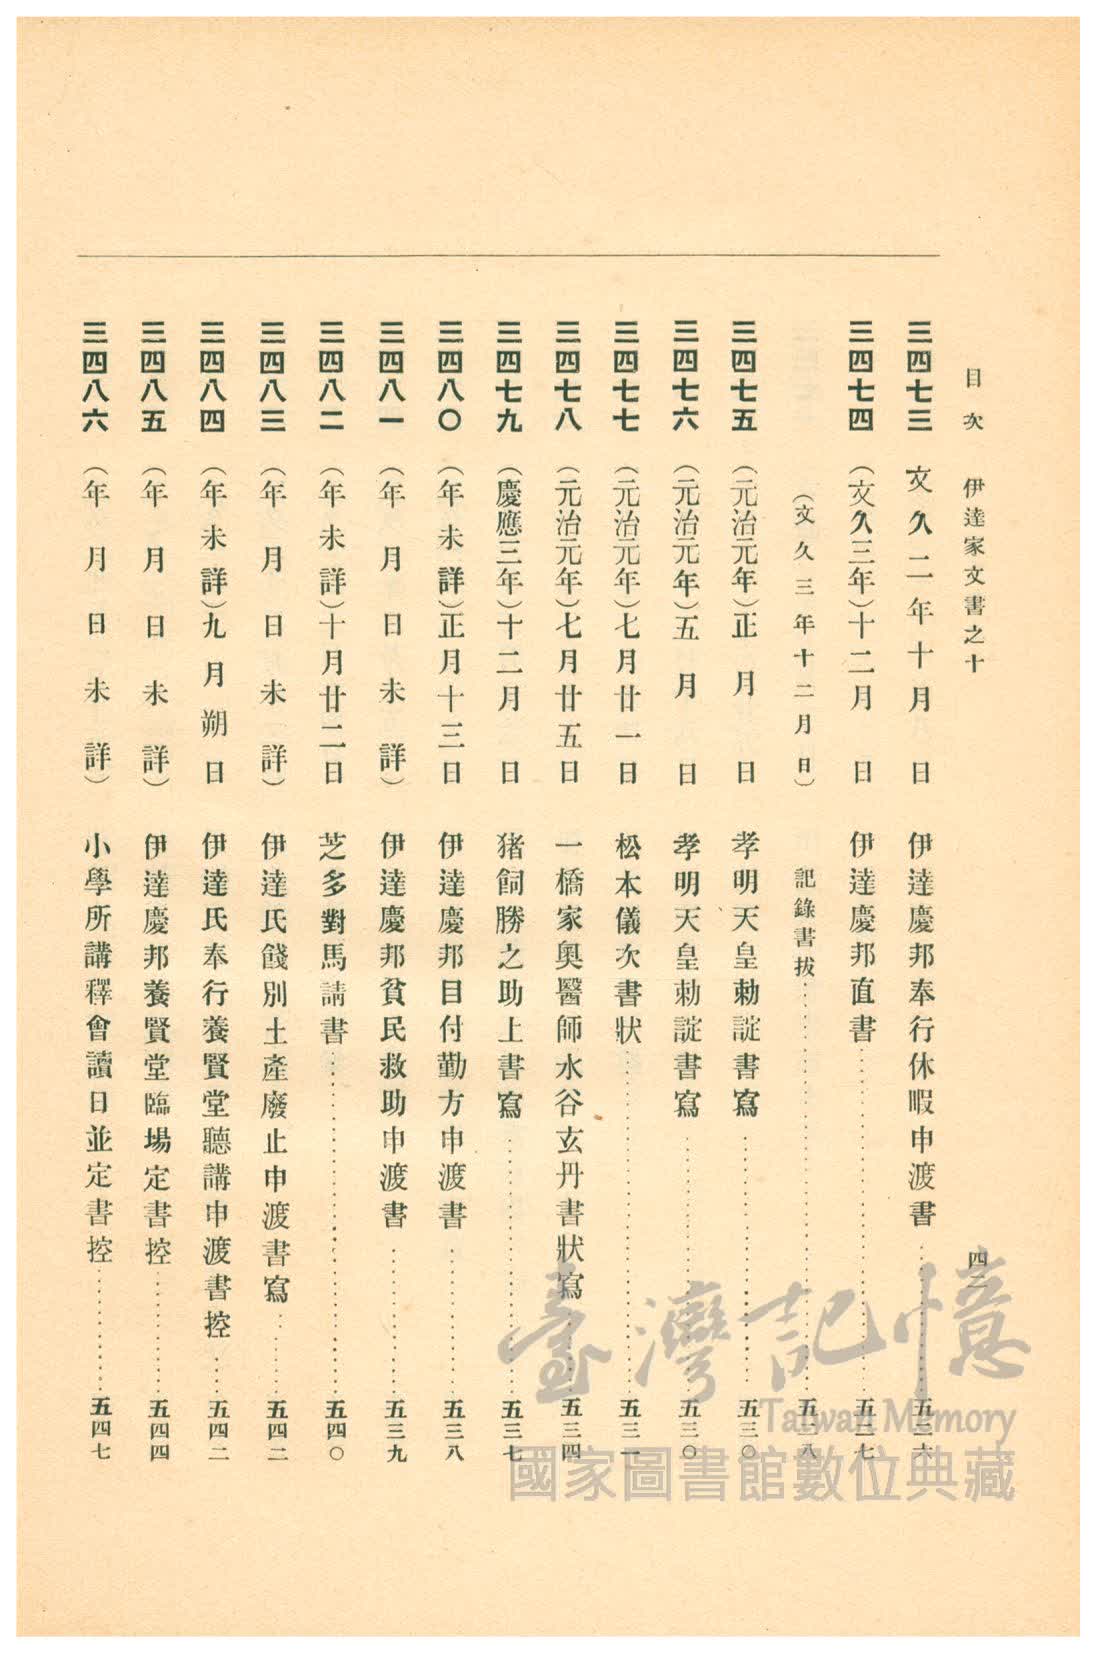 目次　伊達家文書之十　四二
三四七三　文久二年十月　日　伊達慶邦奉行休暇申渡書…………五二六
三四七四　（文久三年）十二月　日　伊達慶邦直書…………五二七
（文久三年十二月　日）　記錄書拔…………五二八
三四七五　（元治元年）正月　日　孝明天皇勅諚書寫…………五三〇
三四七六　（元治元年）五月　日　孝明天皇勅諚書寫…………五三〇
三四七七　（元治元年）七月廿一日　松本儀次書狀…………五三一
三四七八　（元治元年）七月廿五日　一橋家奧醫師水谷玄丹書狀寫…………五三四
三四七九　（慶應三年）十二月　日　猪飼勝之助上書寫…………五三七
三四八〇　（年未詳）正月十三日　伊達慶邦目付勤方申渡書…………五三八
三四八一　（年月日未詳）　伊達慶邦貧民救助申渡書…………五三九
三四八二　（年未詳）十月廿二日　芝多對馬請書…………五四〇
三四八三　（年月日未詳）　伊達氏餞別土產廢止申渡書寫…………五四二
三四八四　（年未詳）九月朔日　伊達氏奉行養賢堂聽講申渡書控…………五四二
三四八五　（年月日未詳）　伊達慶邦養賢堂臨場定書控…………五四四
三四八六　（年月日未詳）　小學所講釋會讀日並定書控…………五四七
臺灣記憶
Taiwan Memory
國家圖書館數位典藏